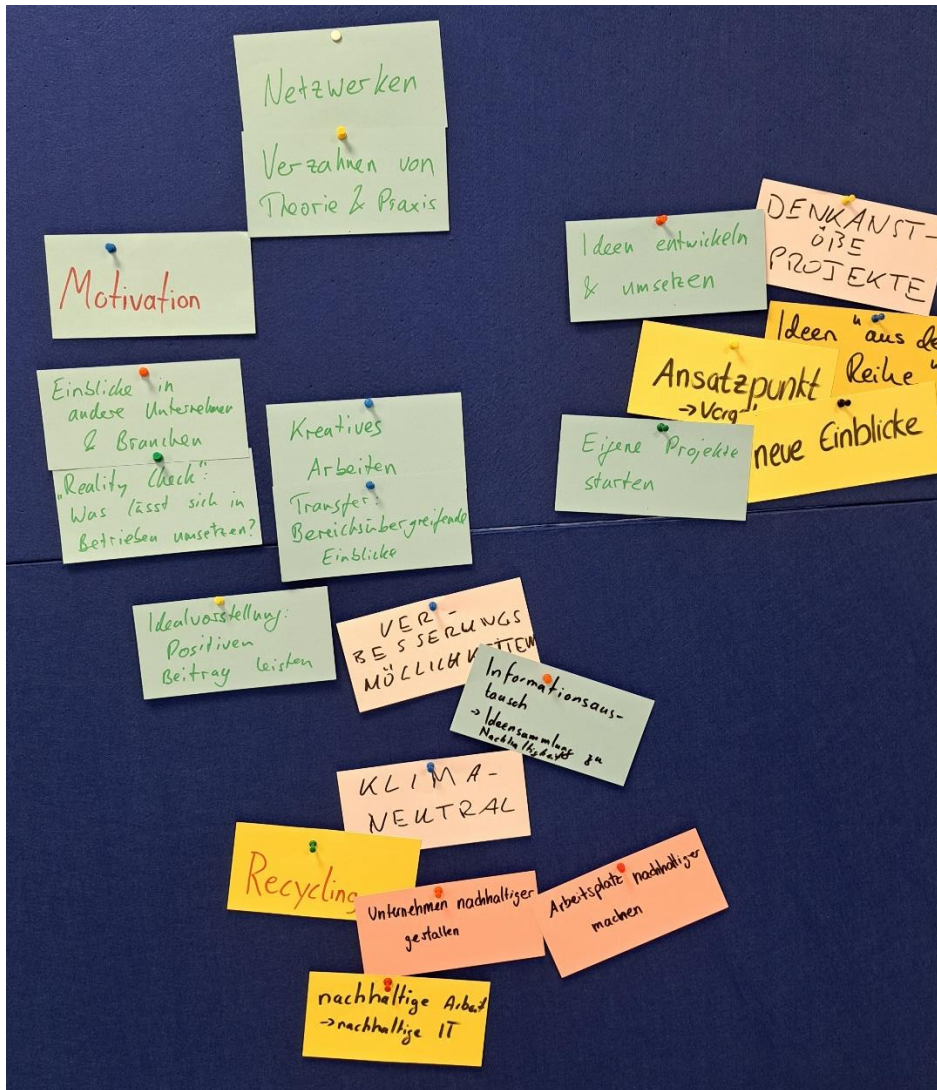 Netzwerken
Verzahnen von
Theorie & Praxis
Motivation
Einblicke in
andere Unternehmen
& Branchen
„Reality Check":
Was lässt sich in
Betrieben umsetzen?
Kreatives
Arbeiten
Transfer:
Bereichsübergreifende
Einblicke
Ideen entwickeln
& umsetzen
DENKANST-
ÖßE
PROJEKTE
Ideen "aus de
Reihe"
Ansatzpunkt
→
Eigene Projekte
starten
neue Einblicke
Idealvorstellung:
Positiven
Beitrag leisten
VER-
BESSERUNGS
MÖLLICHKEITEN
Informationsaus-
tausch
→ Ideensammlung zu
Nachhaltigkeit
KLIMA-
NEUTRAL
Recycling
Unternehmen nachhaltiger
gestalten
Arbeitsplatz nachhaltiger
machen
nachhaltige Arbeit
→nachhaltige IT